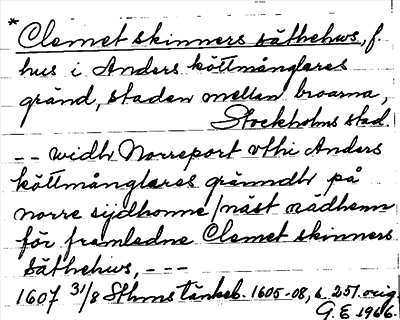 * Clemet skinners säthehws, f.
hus i Anders köttmånglares
gränd, staden mellan broarna,
Stockholms stad.
-- widh Norreport vthi Anders
köttmånglares gränndh på
norre sijdhonne / näst rådhenn
för framledne Clemet skinners
Säthehws, ---
1607 31/8 Sthms tänkeb. 1605-08, s. 251. orig.
G. E. 1966.